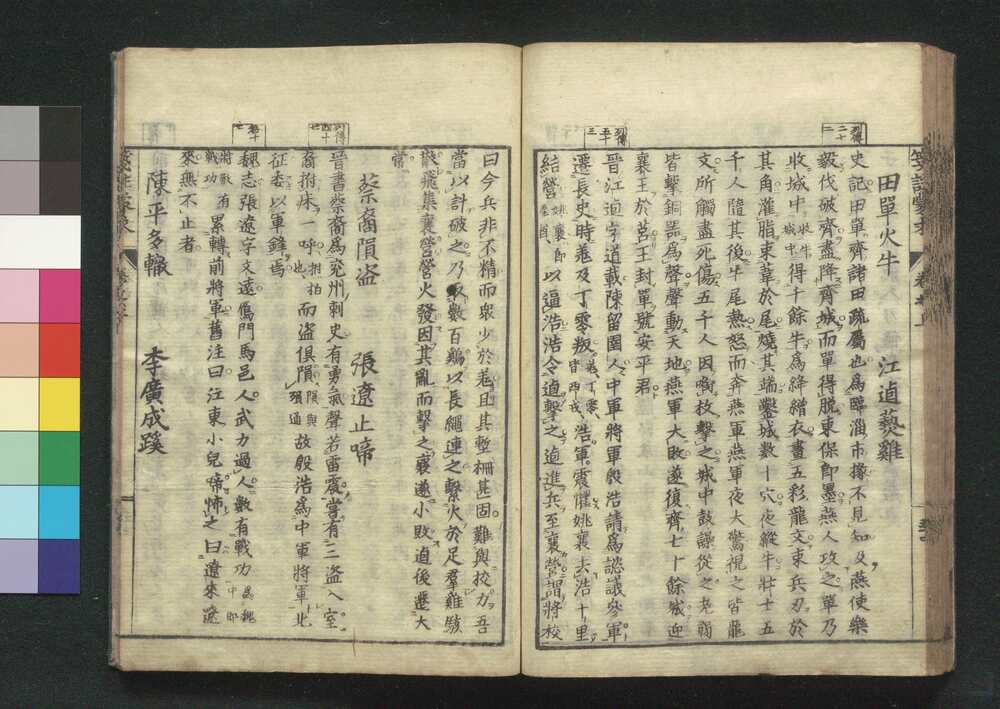 田單火牛 江逌爇雞
史記田單齊諸田疏屬也爲臨淄市掾不見知及燕使樂
毅伐破齊盡降齊城而單得脫東保即墨燕人攻之單乃
收城中收牛城中得千餘牛爲絳繒衣畫五彩龍文束兵刃於
其角灌脂束葦於尾燒其端鑿城數十穴夜縱牛壯士五
千人隨其後牛尾熱怒而奔燕軍燕軍夜大驚視之皆龍
文所觸盡死傷五千人因啣枚擊之城中鼓譟從之老弱
皆擊銅器爲聲聲動天地燕軍大敗遂復齊七十餘城迎
襄王於莒王封單號安平君
晉江逌字道載陳留圉人中軍將軍殷浩請爲諮議參軍
遷長史時羗及丁零叛羗丁零皆西戎浩軍震懼姚襄去浩十里
結營姚襄即羗酋以逼浩浩令逌擊之逌進兵至襄營謂將校
曰今兵非不精而衆少於羗且其塹柵甚固難與挍力吾
當以計破之乃取數百鷄以長繩連之繫火於足羣雞駭
散飛集襄營營火發因其亂而擊之襄遂小敗逌後遷大
常
蔡裔隕盜 張遼止啼
晉書蔡裔爲兖州刺史有勇氣聲若雷震嘗有二盜入室
裔拊床一呼拊拍也而盜俱隕隕與殞通故殷浩爲中軍將軍北
征委以軍鋒焉
魏志張遼字文遠鴈門馬邑人武力過人數有戰功爲魏中郎將數有戰功累轉前將軍舊注曰江東小兒啼怖之曰遼來遼
來無不止者
陳平多轍 李廣成蹊
列傳二十二
列傳五十三
列傳四十七
魏十七
箋註蒙求